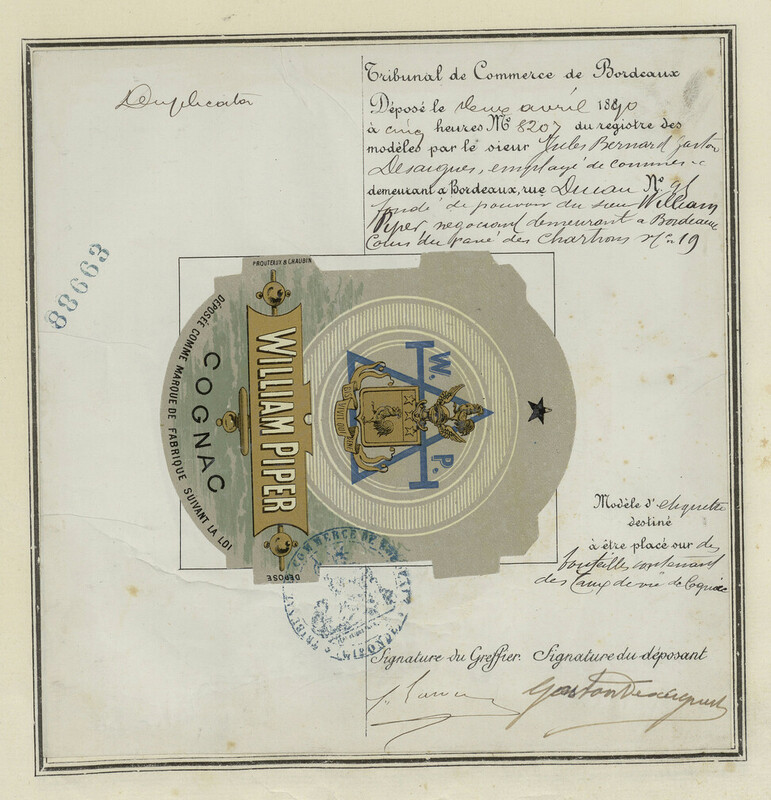 Duplicata
Tribunal de Commerce de Bordeaux
Déposé le deux avril 1890
à cinq heures No 8207 du registre des
modèles par le sieur Jules Bernard Gaston
Desargues, employé de commerce
demeurant à Bordeaux, rue No 91
fondé de pouvoir du sieur William
Piper, négociant demeurant à Bordeaux
Cours du pavé des Chartrons No 19
88663
PROUTEAUX & CHAUBIN
DÉPOSÉE COMME MARQUE DE FABRIQUE SUIVANT LA LOI
COGNAC
WILLIAM PIPER
W. P.
DÉPOSÉ
Modèle d'étiquette
destiné
à être placé sur des
bouteilles contenant
des Eaux de vie de Cognac
TRIBUNAL COMMERCE DE BORDEAUX
Signature du Greffier. Signature du déposant